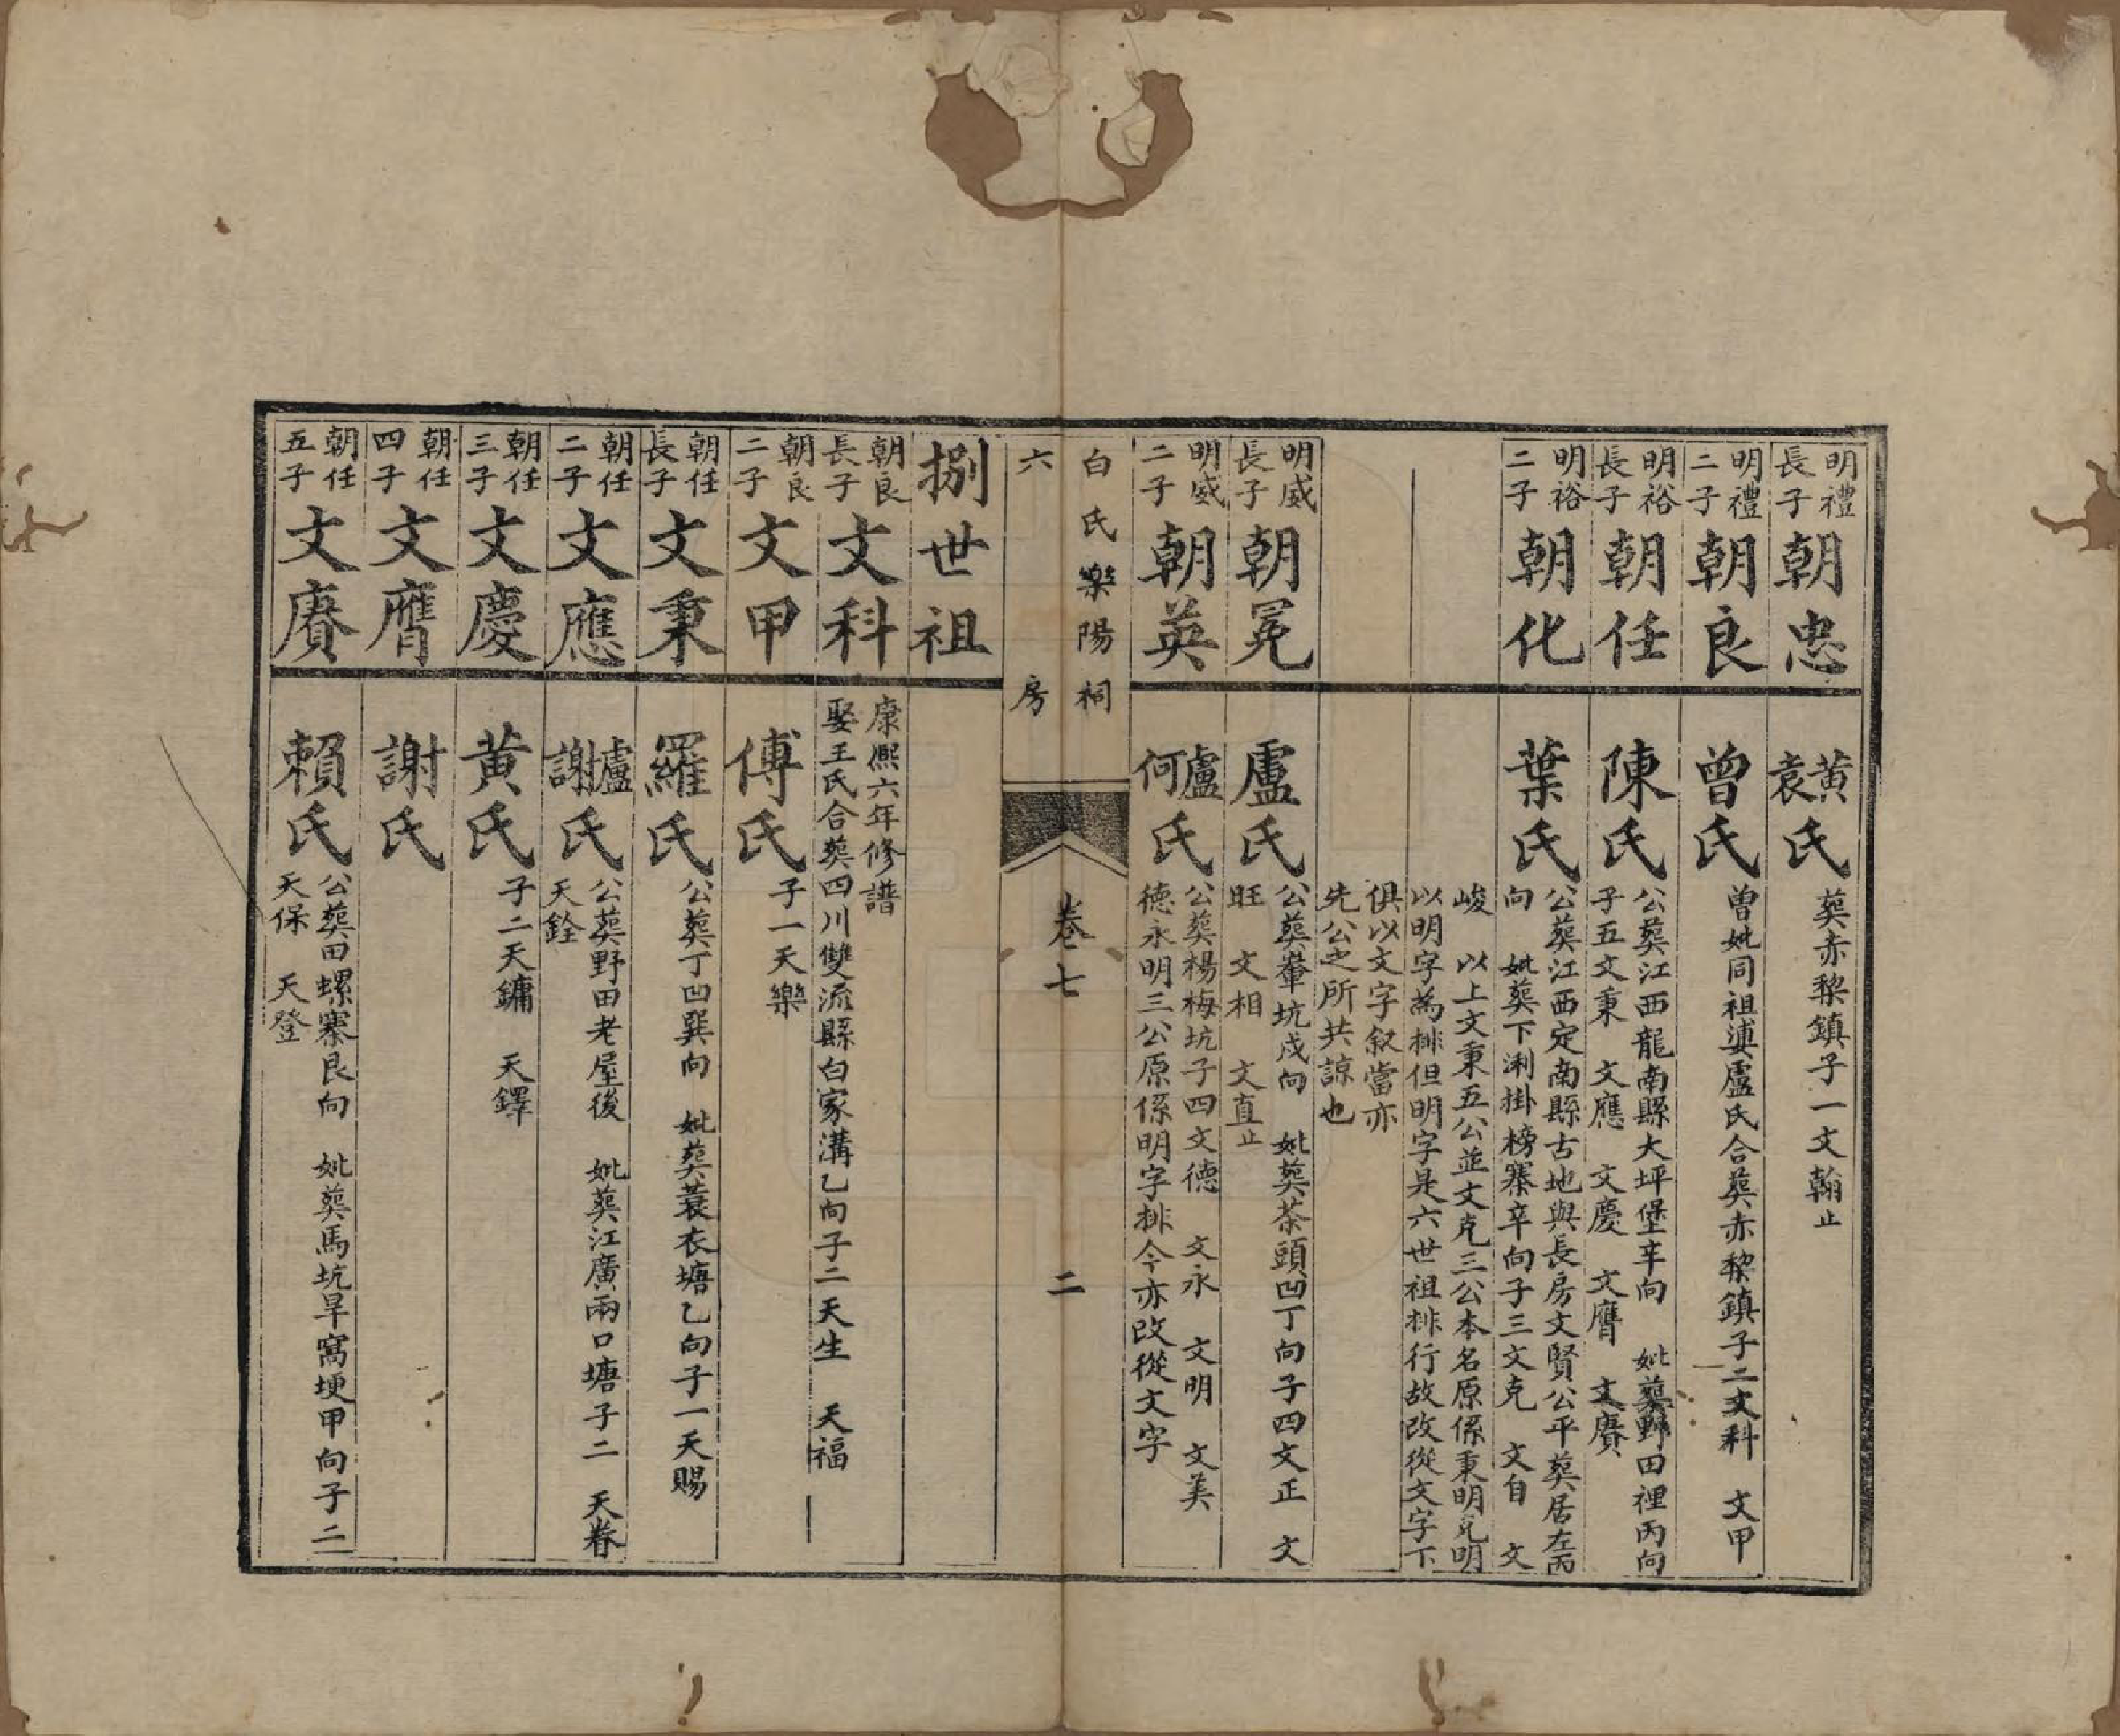 明禮長子
朝忠
黃袁氏
葬赤黎鎮子一文翰止
明禮二子
朝良
曾氏
曾妣同祖婆盧氏合葬赤黎鎮子二文科 文甲
明裕長子
朝任
陳氏
公葬江西龍南縣大坪堡辛向 妣葬野田裡丙向
子五文秉 文應 文慶 文膺 文賡
明裕二子
朝化
葉氏
公葬江西定南縣古地與長房文賢公平葬居左丙
向 妣葬下浰掛榜寨辛向子三文克 文自 文
峻 以上文秉五公並文克三公本名原係秉明克明
以明字為排但明字是六世祖排行故改從文字下
俱以文字叙當亦
先公之所共諒也
明威長子
朝冕
盧氏
公葬輋坑戌向 妣葬茶頭凹丁向子四文正 文
旺 文相 文直止
明威二子
朝英
盧何氏
公葬楊梅坑子四文德 文永 文明 文美
德永明三公原係明字排今亦改從文字
白氏樂陽祠
六房
卷七
二
捌世祖
朝良長子
文科
康熙六年修譜
娶王氏合葬四川雙流縣白家溝乙向子二天生 天福
朝良二子
文甲
傅氏
子一天樂
朝任長子
文秉
羅氏
公葬丁凹巽向 妣葬蓑衣塘乙向子一天賜
朝任二子
文應
盧謝氏
公葬野田老屋後 妣葬江廣兩口塘子二 天眷
天銓
朝任三子
文慶
黃氏
子二天鏞 天鐸
朝任四子
文膺
謝氏
朝任五子
文賡
賴氏
公葬田螺寨艮向 妣葬馬坑旱窩埂甲向子二
天保 天登